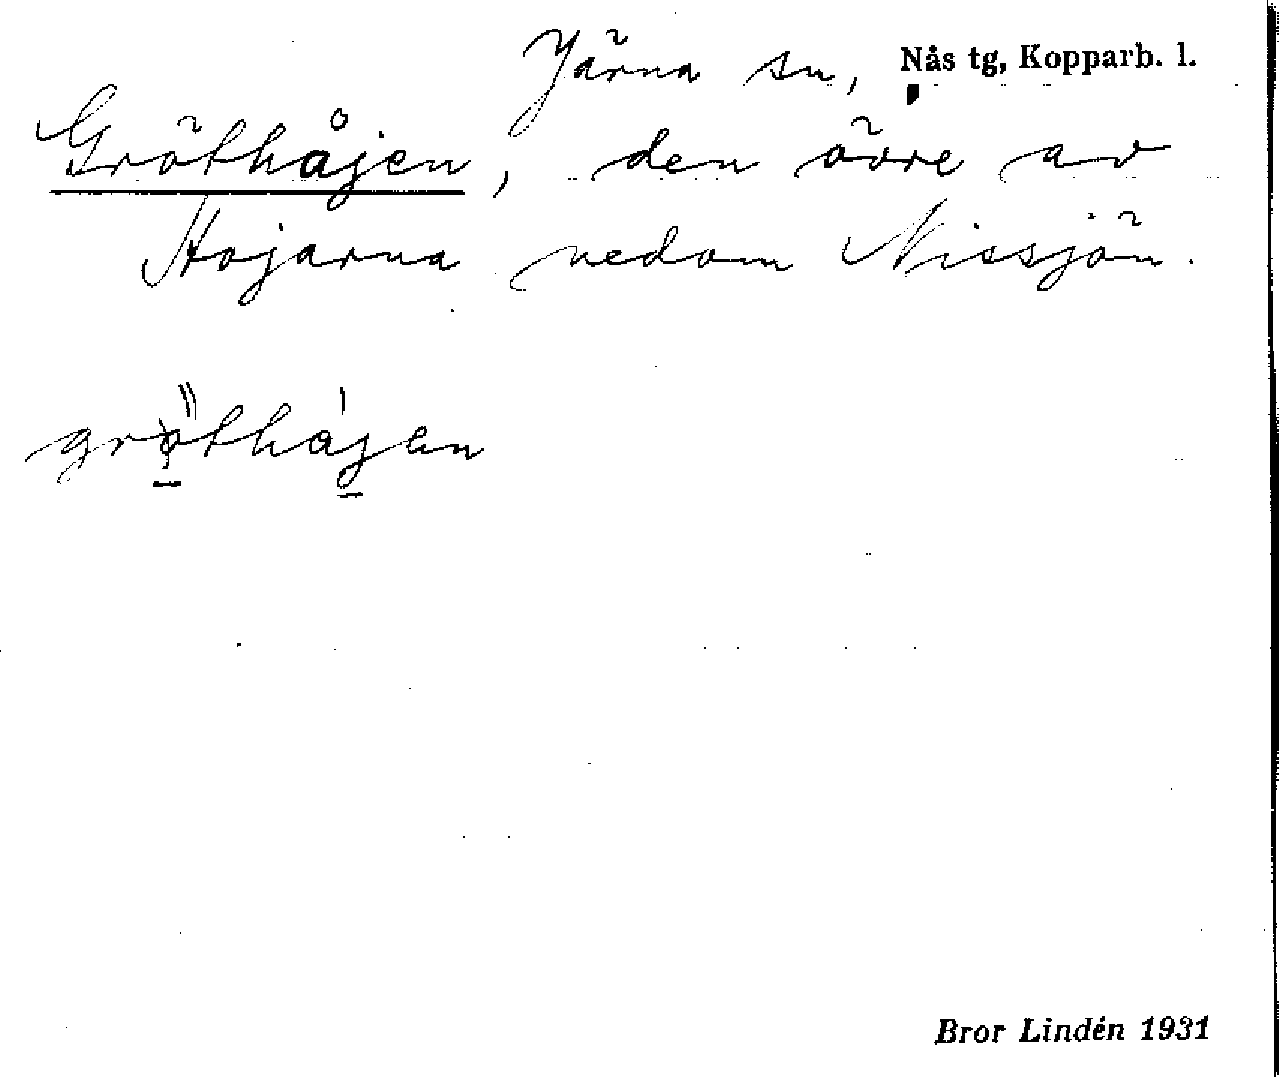 Järna sn, Nås tg, Kopparb. l.
Gröthåjen, den övre av
Hojarna nedom Nissjön.
gröthåjen
Bror Lindén 1931